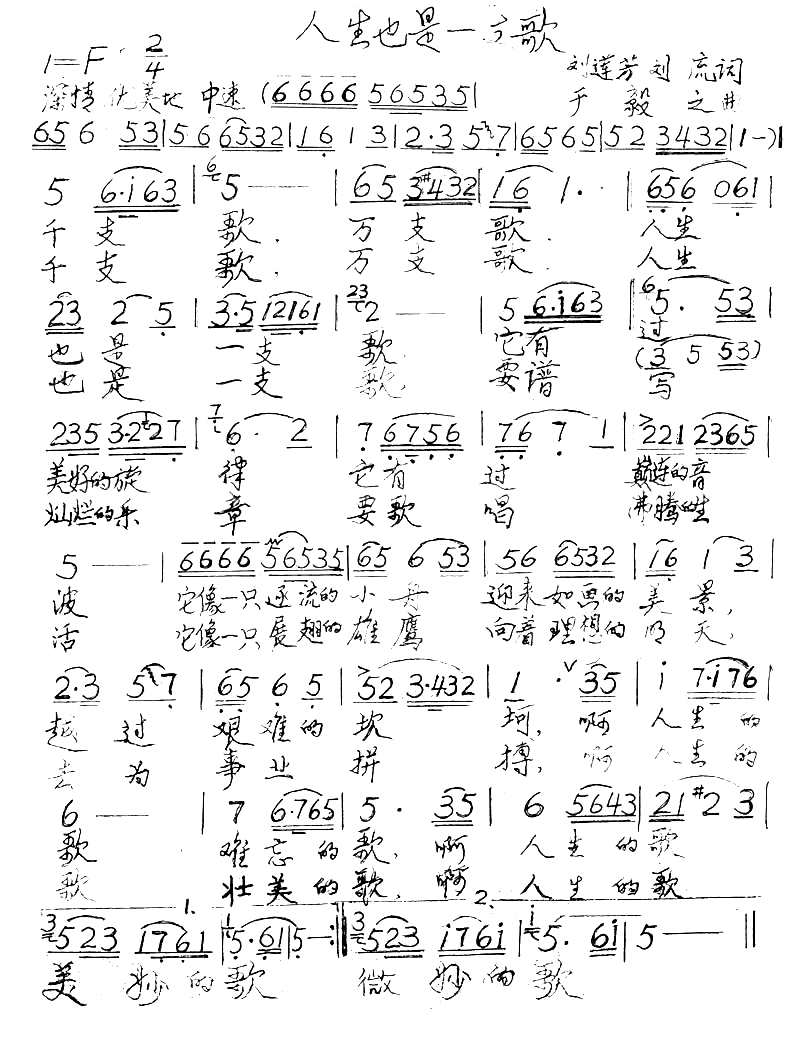 人生也是一支歌
1=F 2/4
刘莲芳 刘流词
深情 优美地 中速 (6666 56535|
于毅之曲
65 6 53|56 6532|16 1 3|2·3 5 7|6565|52 3432|1-)|
5 6·i63|5——|65 3#432|16 1·|656 061|
千支 歌. 万支 歌. 人生
千支 歌. 万支 歌. 人生
23 2 5|3·5 12161|2——|5 6·i63|5· 53|
也是 一支 歌. 它有 过
(3 5 53)
也是 一支 歌. 要谱 写
235 3·227|6· 2|7 6756|76 7 1|221 2365|
美好的旋 律 它有 过 巅连的音
灿烂的乐 章 要歌 唱 沸腾的生
5——|6666 56535|65 6 53|56 6532|16 1 3|
波 它像一只逐流的小舟 迎来如画的美景,
活 它像一只展翅的雄鹰 向着理想的明天,
2·3 5 7|65 6 5|52 3·432|1 · 35|i 7·i76|
越过 艰难的坎 坷, 啊 人生的
去为 事业 拼 搏, 啊 人生的
6——|7 6·765|5· 35|6 5643|21 #2 3|
歌 难忘的歌, 啊 人生的歌
歌 壮美的歌, 啊 人生的歌
1. 2.
523 1761|5·61|5—:‖523 i76i|5· 6i|5——‖
美妙的歌 微妙的歌